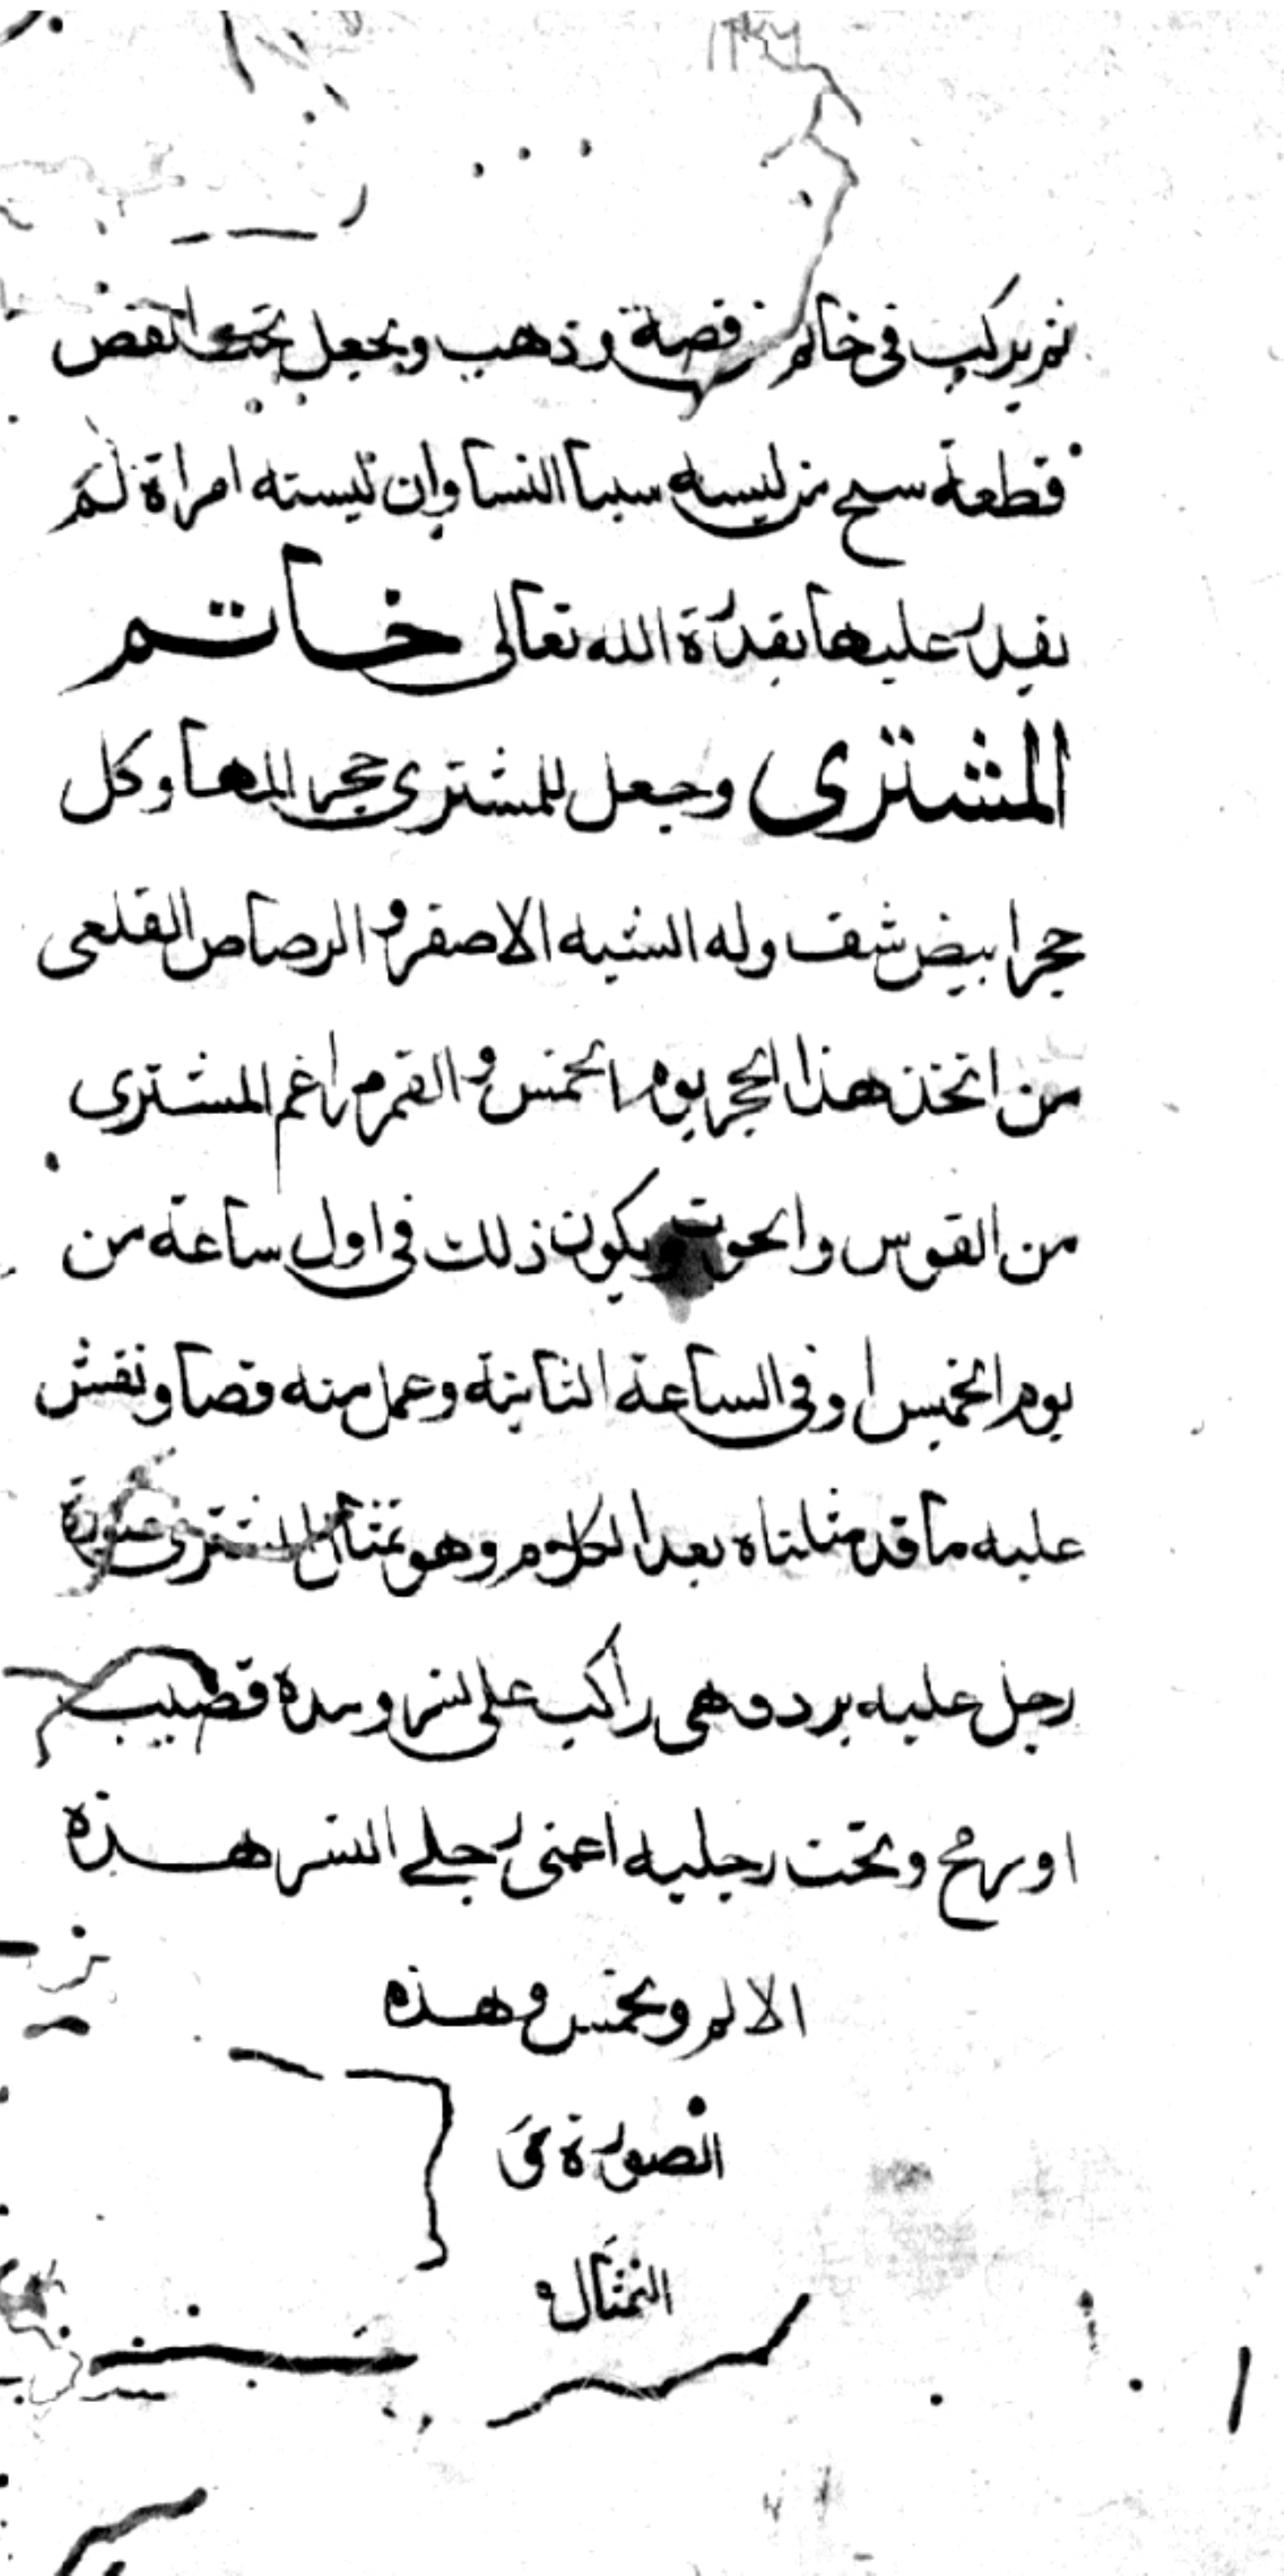 ثم يركب في خاتم فضة وذهب ويجعل تحت الفص
قطعة سبج من لبسه سبا النسا وان لبسته امراة لم
يقدر عليها بقدرة الله تعالى خاتم
المشترى وجعل للمشترى حجر المها وكل
حجر ابيض شف وله الشبه الاصفر والرصاص القلعى
من اتخذ هذا الحجر يوم الخمس والقمر مراغم المشترى
من القوس والحوت ويكون ذلك في اول ساعة من
يوم الخميس او في الساعة الثانية وعمل منه فصا ونقش
عليه ما قد مثلناه بعد الكلام وهو تمثال المشترى صورة
رجل عليه برد وهى راكب على نسر وبيده قضيب
او رمح وتحت رجليه اعنى رجلى النسر هذه
وهذه
الصورة فى
التمثال